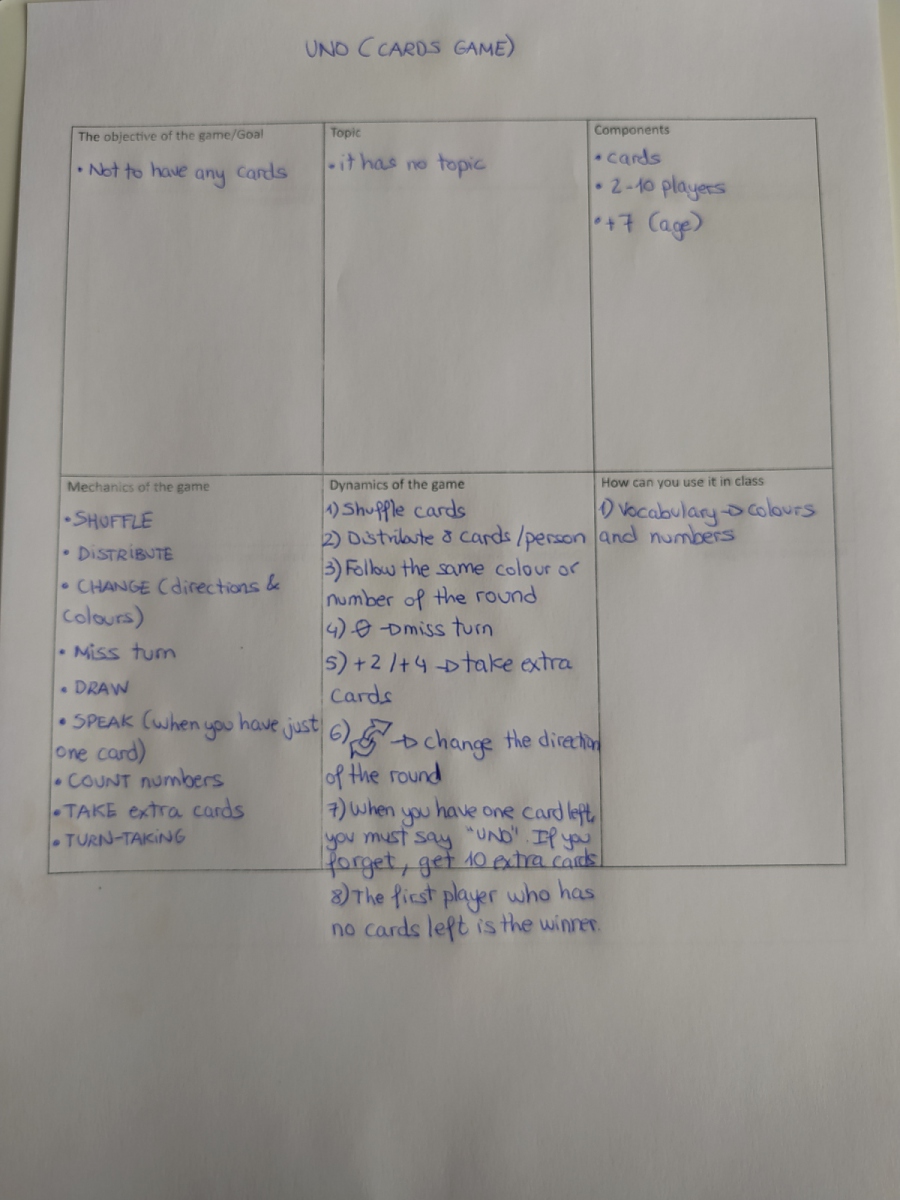 UNO (CARDS GAME)
The objective of the game/Goal
• Not to have any cards
Topic
• it has no topic
Components
• cards
• 2-10 players
• +7 (age)
Mechanics of the game
• SHUFFLE
• DISTRIBUTE
• CHANGE (directions &
colours)
• Miss turn
• DRAW
• SPEAK (when you have just
one card)
• COUNT numbers
• TAKE extra cards
• TURN-TAKING
Dynamics of the game
1) Shuffle cards
2) Distribute 8 cards /person
3) Follow the same colour or
number of the round
4) → miss turn
5) +2 /+4 → take extra
cards
6) → change the direction
of the round
7) When you have one card left,
you must say "UNO". If you
forget, get 10 extra cards
8) The first player who has
no cards left is the winner.
How can you use it in class
1) Vocabulary → colours
and numbers